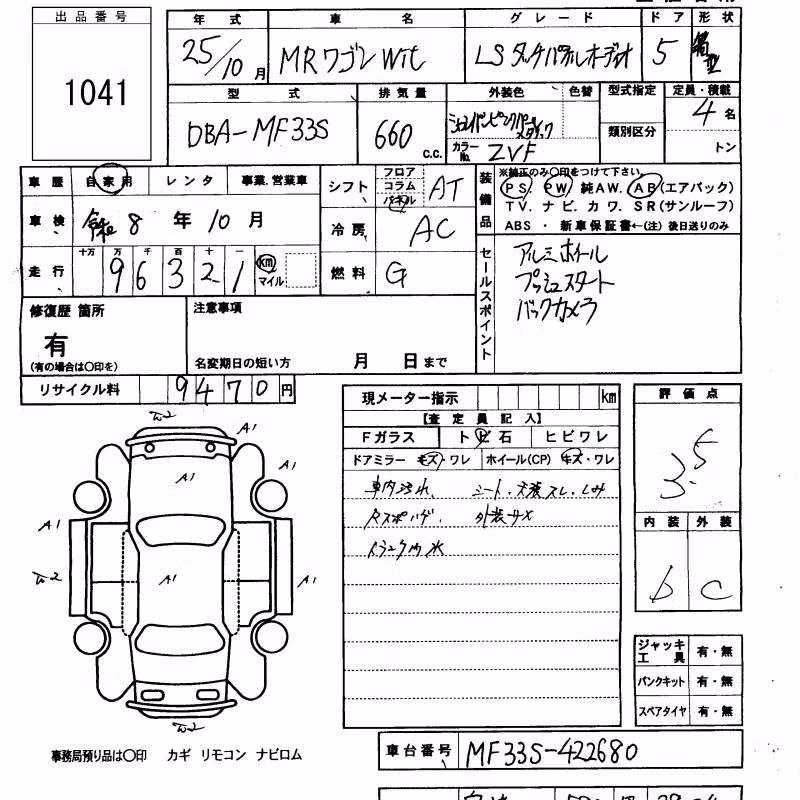 出品番号
1041
年式 車名 グレード ドア 形状
25/10月 MRワゴンWit LSタッチパネルオーディオ 5 箱型
型式 排気量 外装色 色替 型式指定 定員・積載
DBA-MF33S 660 c.c. カラーNo. ZVF 類別区分 4名
トン
車歴 自家用 レンタ 事業.営業車
シフト フロア コラム パネル AT
装備品 ※純正のみ〇印をつけて下さい。
PS PW 純AW. AB(エアバック)
TV. ナビ. カワ. SR(サンルーフ)
ABS ・ 新車保証書←(注) 後日送りのみ
車検 8年10月
冷房 AC
走行 十万 万 千 百 十 一
96321 km マイル
燃料 G
セールスポイント
アルミホイール
プッシュスタート
バックカメラ
修復歴 箇所
有
(有の場合は〇印を)
注意事項
名変期日の短い方 月 日まで
リサイクル料 9470円
現メーター指示 km
【査定員記入】
Fガラス ト ビ 石 ヒビワレ
ドアミラー キズ・ワレ ホイール(CP) キズ・ワレ
車内汚れ、 シート・天張スレ・しみ
Rスポハゲ、 外装サメ
トランク内水
評価点
3.5
内装 外装
b C
W2
A1
A1 A1
A1
A1 A1
W2 A1
W2
ジャッキ工具 有・無
パンクキット 有・無
スペアタイヤ 有・無
事務局預り品は〇印 カギ リモコン ナビロム
車台番号 MF33S-422680